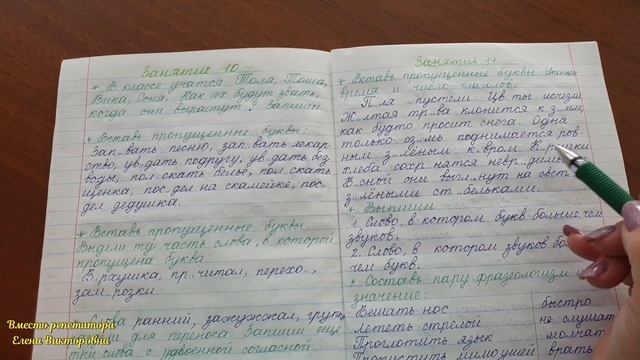 Занятие 10
* В классе учатся Толя, Тоша,
Вика, Соня. Как их будут звать,
когда они вырастут? Запиши.
* Вставь пропущенные буквы:
Зап..вать песню, зап..вать лекар-
ство, ув..дать подругу, ув..дать без
воды, пол..скать бельё, пол..скать
щенка, пос..дел на скамейке, пос..
дел дедушка.
* Вставь пропущенные буквы.
Выдели ту часть слова, в которой
пропущена буква:
В..рхушка, пр..читал, перехо..,
зам..розки.
Слова ранний, зажужжал, группа
для переноса. Запиши ещё
три слова с удвоенной согласной.
Занятие 11
* Вставь пропущенные буквы. Укажи
время и число глаголов.
П..ля пустели. Цв..ты исчезли.
Ж..лтая тр..ва клонится к з..мле,
как будто просит снега. Одна
только оз..мь поднимается ров-
ным з..лёным к..вром. В..р..нки
хлеба сохр..нятся невр..дим
В..сной они выгл..нут на свет
з..лёными ст..бельками.
* Выпиши
1. Слово, в котором букв больше, чем
звуков.
2. Слово, в котором звуков бо
чем букв.
* Составь пару: фразеологизм и
значение:
Вешать нос
Лететь стрелой
Проглотить язык
Пропустить мимо ушей
быстро
не слушат
молчать
врать
Вместо репетитора
Елена Викторовна